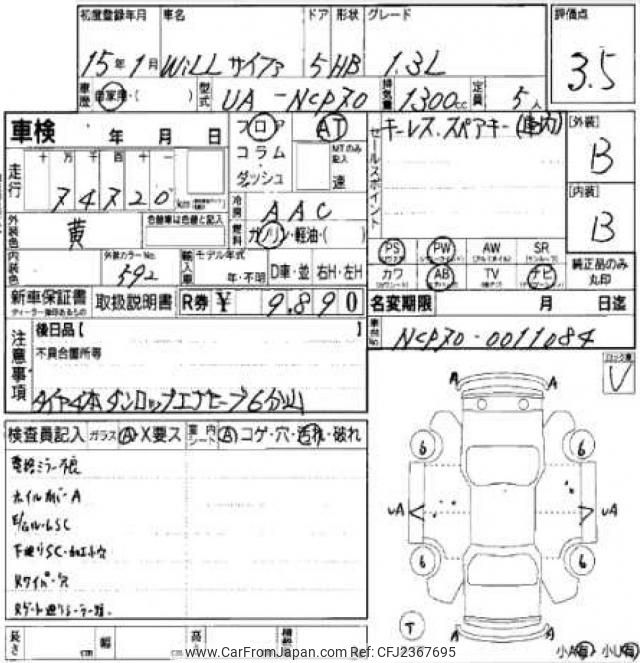 初度登録年月 車名 ドア 形状 グレード 評価点
15年1月 WiLL サイファ 5 HB 1.3L 3.5
車歴 自家用・( ) 型式 UA-NCP70 排気量 1300cc 定員 5人
車検 年 月 日 フロア AT セールスポイント キーレス、スペアキー [外装]
コラム MTのみ記入 B
走行 十 万 千 百 十 一 ダッシュ 速
74720 km 冷房 AAC [内装]
外装色 黄 色替車は色替と記入 燃料 ガソリン・軽油・( ) B
PS PW AW SR
内装色 外装カラーNo. 592 輸入車 モデル年式 年・不明 D車・並 右H・左H カワ AB TV ナビ 純正品のみ丸印
新車保証書 取扱説明書 R券 ¥ 9,890 名変期限 月 日迄
ディーラー捺印あるもの
注意事項 後日品【 】 車台No. NCP70-0011084
不具合箇所等
タイヤ4本ダンロップエナセーブ6分山
検査員記入 ガラス A・X要ス 室内シート A コゲ・穴・汚れ・破れ
電格ミラー不良
ホイルカバーA
下廻りSC・
Rワイパー穴
A A
6 6
uA uA
6 6
T A A
小A有・小U有
長さ cm 幅 cm 高
www.CarFromJapan.com Ref: CFJ2367695